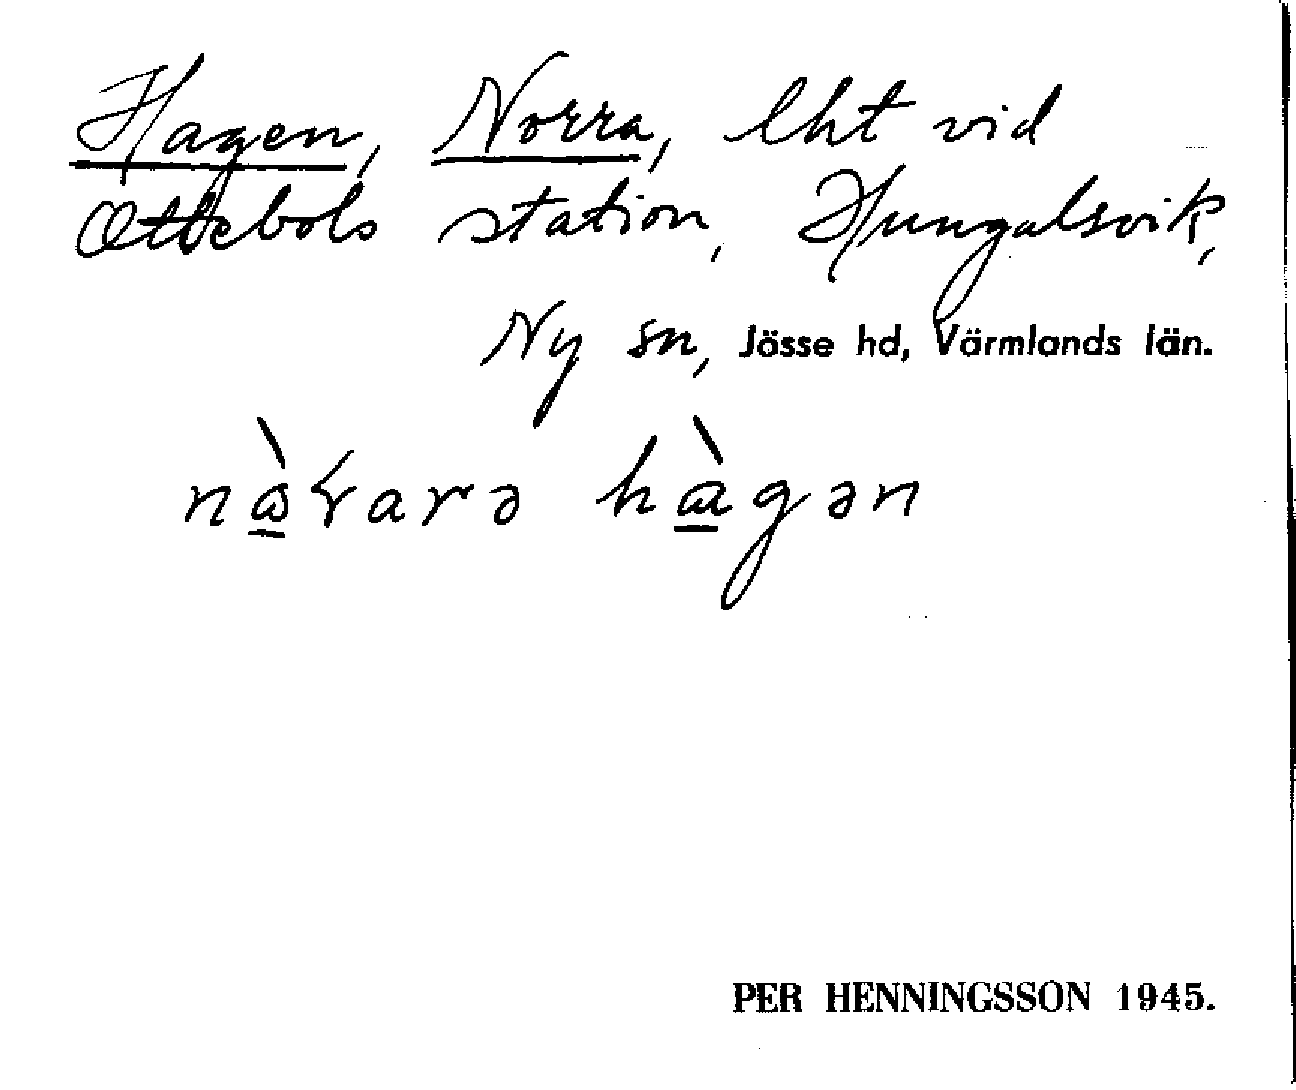 Hagen, Norra, lht vid
Ottebols station, Hungalsvik,
Ny sn, Jösse hd, Värmlands län.
hàgən
PER HENNINGSSON 1945.